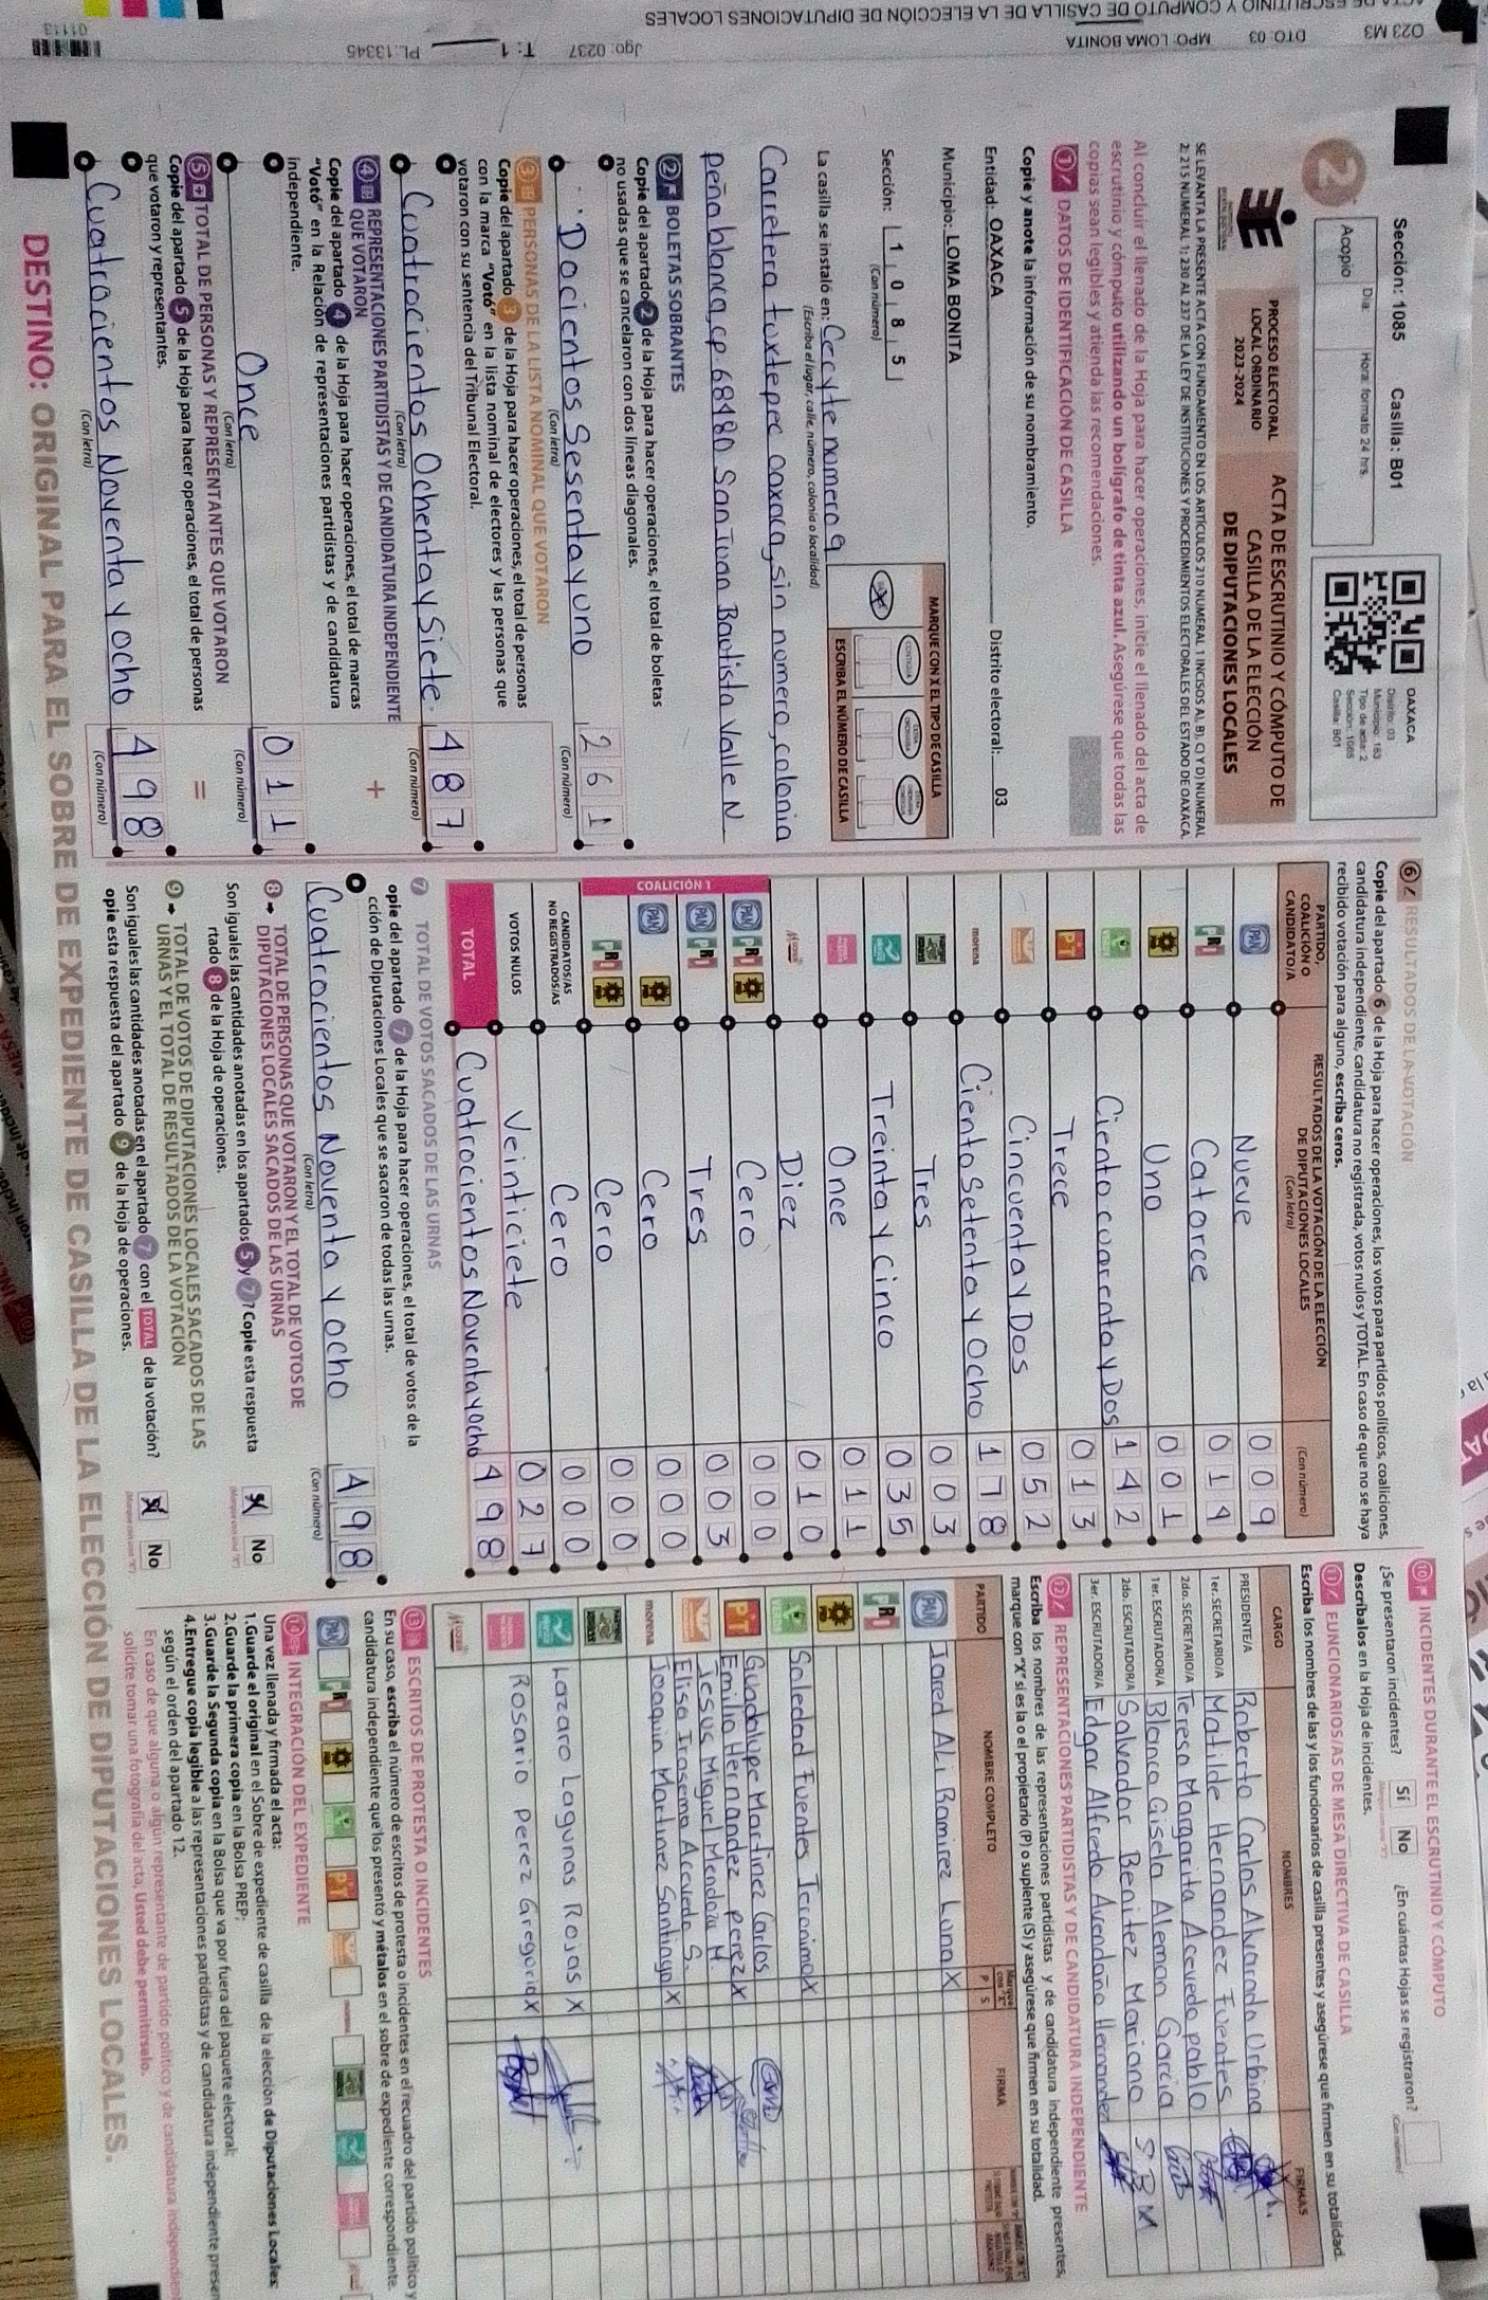 O23 M3
DTO: 03
MPO: LOMA BONITA
Jgo: 0237
T: 1
PL.:13345
01113
Sección: 1085 Casilla: B01
2
Día:
Hora: formato 24 hrs.
Acopio
OAXACA
Distrito: 03
Municipio: 183
Tipo de acta: 2
Sección: 1085
Casilla: B01
PROCESO ELECTORAL
LOCAL ORDINARIO
2023-2024
ACTA DE ESCRUTINIO Y CÓMPUTO DE
CASILLA DE LA ELECCIÓN
DE DIPUTACIONES LOCALES
SE LEVANTA LA PRESENTE ACTA CON FUNDAMENTO EN LOS ARTÍCULOS 210 NUMERAL 1 INCISOS A), B), C) Y D) NUMERAL
2; 215 NUMERAL 1; 230 AL 237 DE LA LEY DE INSTITUCIONES Y PROCEDIMIENTOS ELECTORALES DEL ESTADO DE OAXACA.
Al concluir el llenado de la Hoja para hacer operaciones, inicie el llenado del acta de
escrutinio y cómputo utilizando un bolígrafo de tinta azul. Asegúrese que todas las
copias sean legibles y atienda las recomendaciones.
1 DATOS DE IDENTIFICACIÓN DE CASILLA
Copie y anote la información de su nombramiento.
Entidad: OAXACA Distrito electoral: 03
Municipio: LOMA BONITA
Sección: 1 0 8 5
(Con número)
MARQUE CON X EL TIPO DE CASILLA
ESCRIBA EL NÚMERO DE CASILLA
La casilla se instaló en: Cecyte numero 9
(Escriba el lugar, calle, número, colonia o localidad)
Carretera tuxtepec oaxaca, sin numero, colonia
peña blanca, cp. 68480 San Juan Bautista Valle N
2 BOLETAS SOBRANTES
Copie del apartado 2 de la Hoja para hacer operaciones, el total de boletas
no usadas que se cancelaron con dos líneas diagonales.
Docientos Sesenta y uno 261
(Con letra) (Con número)
3 PERSONAS DE LA LISTA NOMINAL QUE VOTARON
Copie del apartado 3 de la Hoja para hacer operaciones, el total de personas
con la marca "Votó" en la lista nominal de electores y las personas que
votaron con su sentencia del Tribunal Electoral.
Cuatrocientos Ochenta y Siete. 487
(Con letra) (Con número)
4 REPRESENTACIONES PARTIDISTAS Y DE CANDIDATURA INDEPENDIENTE
QUE VOTARON
+
Copie del apartado 4 de la Hoja para hacer operaciones, el total de marcas
"Votó" en la Relación de representaciones partidistas y de candidatura
independiente.
Once 011
(Con letra) (Con número)
5 TOTAL DE PERSONAS Y REPRESENTANTES QUE VOTARON
=
Copie del apartado 5 de la Hoja para hacer operaciones, el total de personas
que votaron y representantes.
Cuatrocientos Noventa y ocho 498
(Con letra) (Con número)
6 RESULTADOS DE LA VOTACIÓN
Copie del apartado 6 de la Hoja para hacer operaciones, los votos para partidos políticos, coaliciones,
candidatura independiente, candidatura no registrada, votos nulos y TOTAL. En caso de que no se haya
recibido votación para alguno, escriba ceros.
PARTIDO,
COALICIÓN O
CANDIDATO/A
RESULTADOS DE LA VOTACIÓN DE LA ELECCIÓN
DE DIPUTACIONES LOCALES
(Con letra)
(Con número)
PAN Nueve 009
PRI Catorce 014
Uno 001
Ciento cuarenta y Dos 142
PT Trece 013
Cincuenta y Dos 052
morena Ciento Setenta y Ocho 178
Tres 003
Treinta y Cinco 035
Once 011
Diez 010
COALICIÓN 1
PAN PRI Cero 000
PAN PRI Tres 003
PAN Cero 000
PRI Cero 000
CANDIDATOS/AS
NO REGISTRADOS/AS Cero 000
VOTOS NULOS Veinticiete 027
TOTAL Cuatrocientos Noventa y ocho 498
7 TOTAL DE VOTOS SACADOS DE LAS URNAS
opie del apartado 7 de la Hoja para hacer operaciones, el total de votos de la
cción de Diputaciones Locales que se sacaron de todas las urnas.
Cuatrocientos Noventa y ocho 498
(Con letra) (Con número)
8 TOTAL DE PERSONAS QUE VOTARON Y EL TOTAL DE VOTOS DE
DIPUTACIONES LOCALES SACADOS DE LAS URNAS
Son iguales las cantidades anotadas en los apartados 5 y 7? Copie esta respuesta
rtado 8 de la Hoja de operaciones.
No
9 TOTAL DE VOTOS DE DIPUTACIONES LOCALES SACADOS DE LAS
URNAS Y EL TOTAL DE RESULTADOS DE LA VOTACIÓN
Son iguales las cantidades anotadas en el apartado 7 con el TOTAL de la votación?
opie esta respuesta del apartado 9 de la Hoja de operaciones.
No
10 INCIDENTES DURANTE EL ESCRUTINIO Y CÓMPUTO
¿Se presentaron incidentes? Sí No ¿En cuántas Hojas se registraron?
Descríbalos en la Hoja de incidentes.
11 FUNCIONARIOS/AS DE MESA DIRECTIVA DE CASILLA
Escriba los nombres de las y los funcionarios de casilla presentes y asegúrese que firmen en su totalidad.
CARGO NOMBRES FIRMAS
PRESIDENTE/A Roberto Carlos Alvarado Urbina
1er. SECRETARIO/A Matilde Hernandez Fuentes
2do. SECRETARIO/A Teresa Margarita Acevedo pablo
1er. ESCRUTADOR/A Blanca Gisela Aleman Garcia
2do. ESCRUTADOR/A Salvador Benitez Mariano S.B M
3er. ESCRUTADOR/A Edgar Alfredo Avendaño Hernandez
12 REPRESENTACIONES PARTIDISTAS Y DE CANDIDATURA INDEPENDIENTE
Escriba los nombres de las representaciones partidistas y de candidatura independiente presentes,
marque con "X" si es la o el propietario (P) o suplente (S) y asegúrese que firmen en su totalidad.
PARTIDO NOMBRE COMPLETO P S FIRMA
PAN Jared Ali Ramirez Luna X
PRI
Soledad Fuentes Jeronimo X
PT Guadalupe Martinez Carlos
Emilio Hernandez perez X
Jesus Miguel Mendoza H.
Elisa Irasema Acevedo S.
morena Joaquin Martinez Santiago X
Lazaro Lagunas Rojas X
Rosario perez Gregorio X
13 ESCRITOS DE PROTESTA O INCIDENTES
En su caso, escriba el número de escritos de protesta o incidentes en el recuadro del partido político y
candidatura independiente que los presentó y métalos en el sobre de expediente correspondiente.
PAN PRI PT
14 INTEGRACIÓN DEL EXPEDIENTE
Una vez llenada y firmada el acta:
1.Guarde el original en el Sobre de expediente de casilla de la elección de Diputaciones Locales;
2.Guarde la primera copia en la Bolsa PREP;
3.Guarde la Segunda copia en la Bolsa que va por fuera del paquete electoral;
4.Entregue copia legible a las representaciones partidistas y de candidatura independiente
según el orden del apartado 12.
En caso de que alguna o algún representante de partido político y de candidatura
solicite tomar una fotografía del acta, Usted debe permitírselo.
DESTINO: ORIGINAL PARA EL SOBRE DE EXPEDIENTE DE CASILLA DE LA ELECCIÓN DE DIPUTACIONES LOCALES.